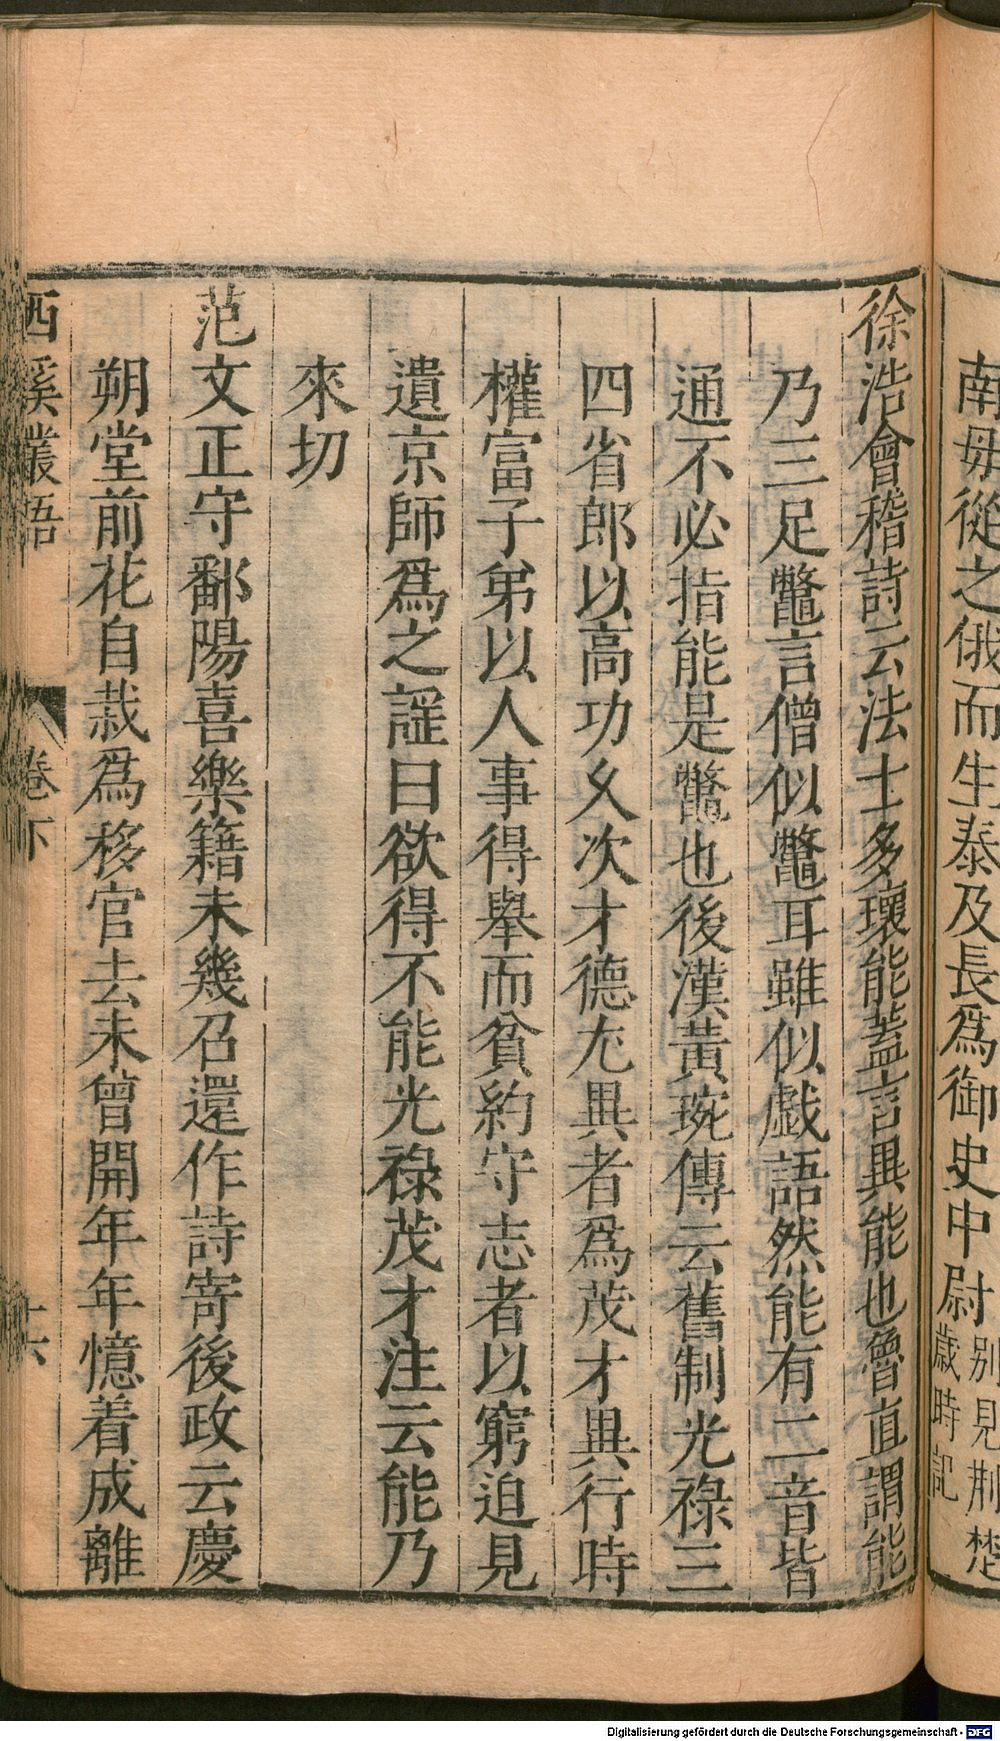 南毋從之俄而生泰及長爲御史中尉別見荊楚
歲時記
徐浩會稽詩云法士多瓌能蓋言異能也魯直謂能
乃三足鼈言僧似鼈耳雖似戯語然能有二音皆
通不必指能是鼈也後漢黃琬傳云舊制光祿三
四省郎以高功乆次才德尤異者爲茂才異行時
權富子弟以人事得舉而貧約守志者以窮迫見
遺京師爲之謡曰欲得不能光祿茂才注云能乃
來切
范文正守鄱陽喜樂籍未幾召還作詩寄後政云慶
朔堂前花自栽爲移官去未曾開年年憶着成離
西溪叢語
卷下
十六
Digitalisierung gefördert durch die Deutsche Forschungsgemeinschaft - DFG